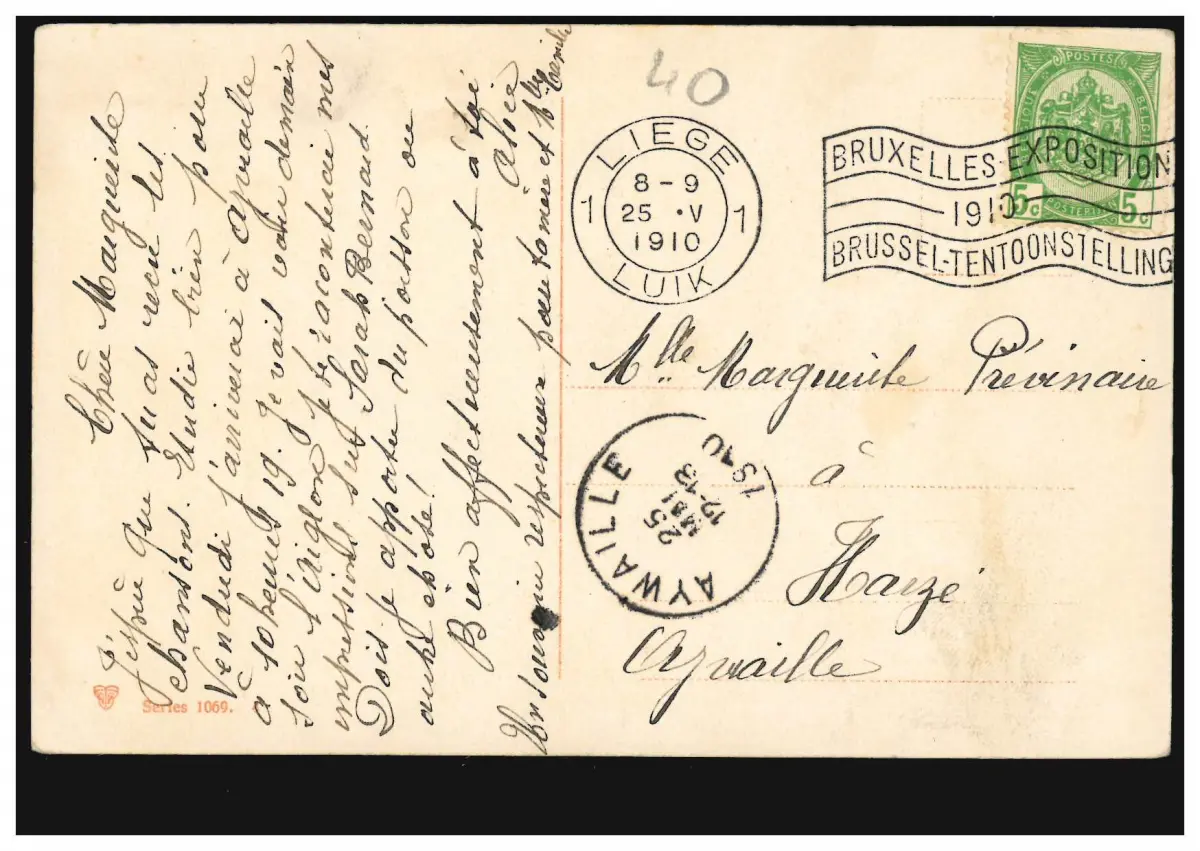 Chère Marguerite
J'espère que tu as reçu les
chansons. Etudie bien pour
Vendredi j'arriverai à Aywaille
à 10 heures 19. Je vais voir demain
soir l'Aiglon, je te raconterai mes
impressions sur Sarah Bernard.
Dois-je apporter du poisson ou
autre chose!
Bien affectueusement à toi
Alice
Un souvenir respectueux pour tes et Mlle
Series 1069.
40
LIEGE
8-9
25 · V
1910
1 1
LUIK
BRUXELLES-EXPOSITION
1910
BRUSSEL-TENTOONSTELLING
POSTES
BELGIQUE
BELGIË
5c 5c
POSTERIJEN
Mlle Marguerite Prévinaire
à
Harzé
Aywaille
AYWAILLE
25
MAI
12-13
1910